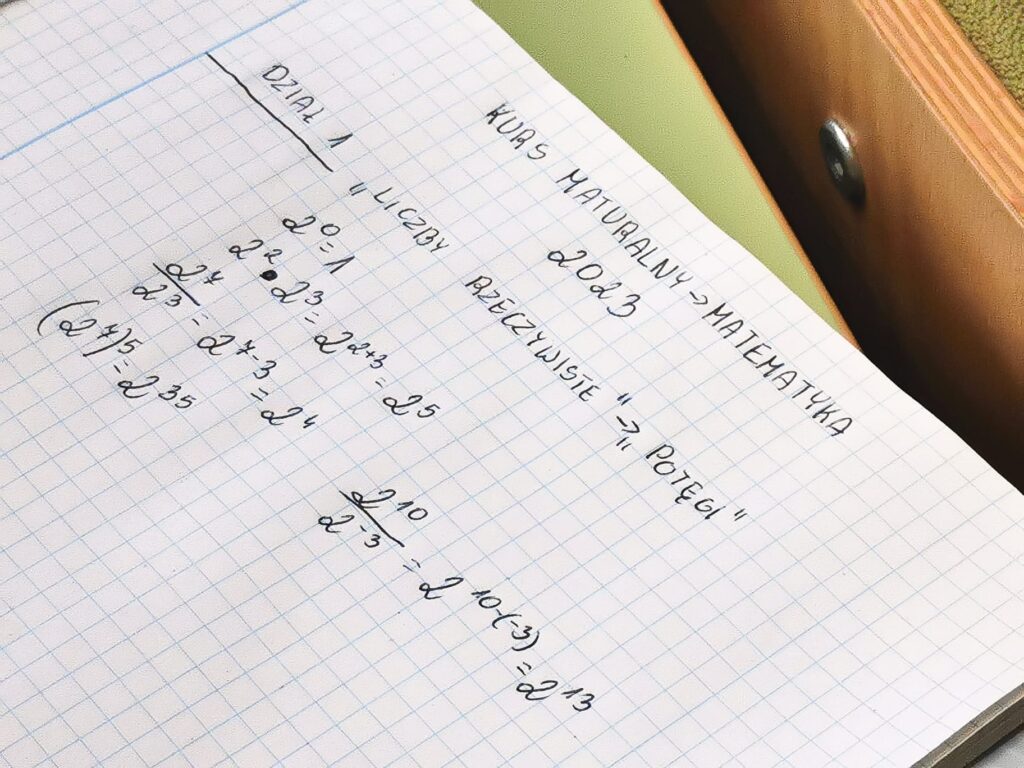 KURS MATURALNY → MATEMATYKA
2023
DZIAŁ 1
"LICZBY RZECZYWISTE" → „POTĘGI"
2⁰ = 1
2² • 2³ = 2²⁺³ = 2⁵
2⁷/2³ = 2⁷⁻³ = 2⁴
(2⁷)⁵ = 2³⁵
2¹⁰/2⁻³ = 2¹⁰⁻⁽⁻³⁾ = 2¹³